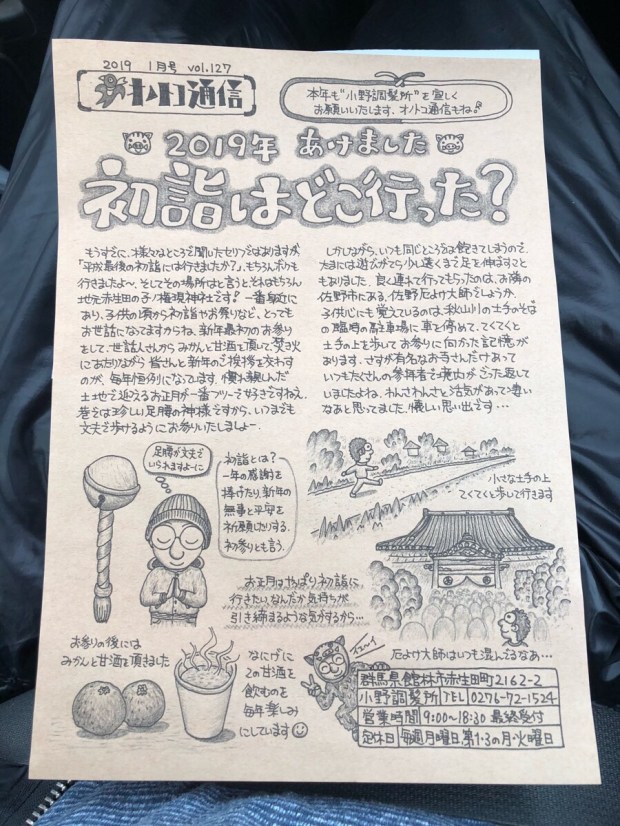 2019 1月号 vol.127
オノトコ通信
本年も"小野調髪所"を宜しく
お願いいたします、オノトコ通信もね!
2019年 あけました
初詣はどこ行った?
もうすでに、様々なところを聞したセリフではありますが
「平成最後の初詣には行きましたか?」、もちろんボクも
行きましたよ〜、そしてその場所はと言うとそれはもちろん
地元赤生田の子ノ権現神社です! 一番身近に
あり、子供の頃から初詣やお祭りなど、とっても
お世話になってますからね、新年最初のお参り
をして、世話人さんからみかんと甘酒を頂いて、焚き火
にあたりながら皆さんと新年のご挨拶を交わす
のが、毎年恒例になっています、慣れ親しんだ
土地で迎えるお正月が一番ツ〜ンで好きですねえ、
巷では珍しい足腰の神様ですから、いつまでも
丈夫で歩けるようにお参りいたしましょー、
しかしながら、いつも同じところでは飽きてしまうので、
たまには遊びがてら少し遠くまで足を伸ばすこと
もありました、良く連れて行ってもらったのは、お隣の
佐野市にある、佐野厄よけ大師でしょうか、
子供心にも覚えているのは、秋山川の土手のそば
の臨時の駐車場に車を停めて、てくてくと
土手の上を歩いてお参りに向かった記憶が
あります、さすが有名なお寺さんだけあって
いつもたくさんの参拝者で境内がごった返して
いましたよね、わんさわんさと活気があって凄い
なあと思ってました、懐しい思い出です…
足腰が丈夫で
いられますよーに
初詣とは?
一年の感謝を
捧げたり、新年の
無事と平安を
祈願したりする、
初参りとも言う、
小さな土手の上
てくてくと歩いて行きます
お正月はやっぱり初詣に
行きたい、なんだか気持ちが
引き締まるような気がするから…
お参りの後には
みかんと甘酒を頂きました
なにげに
この甘酒を
飲むのを
毎年楽しみ
にしています
厄よけ大師はいつも混んでるなあ…
群馬県館林市赤生田町2162-2
小野調髪所 TEL 0276-72-1524
営業時間 9:00〜18:30 最終受付
定休日 毎週月曜日、第1・3の月・火曜日